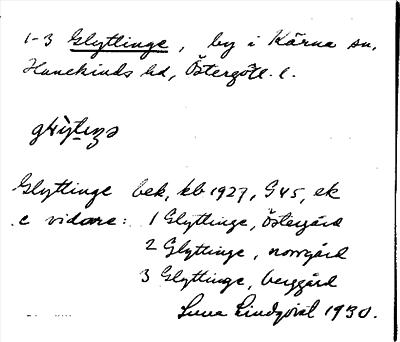 1-3 Glyttinge, by i Kärna sn,
Hanekinds hd, Östergötl. l.
Glyttinge bek, kb 1927, G45, ek
e vidare: 1 Glyttinge, östergård
2 Glyttinge, norrgård
3 Glyttinge, berggård
Suna Lindqvist 1930.